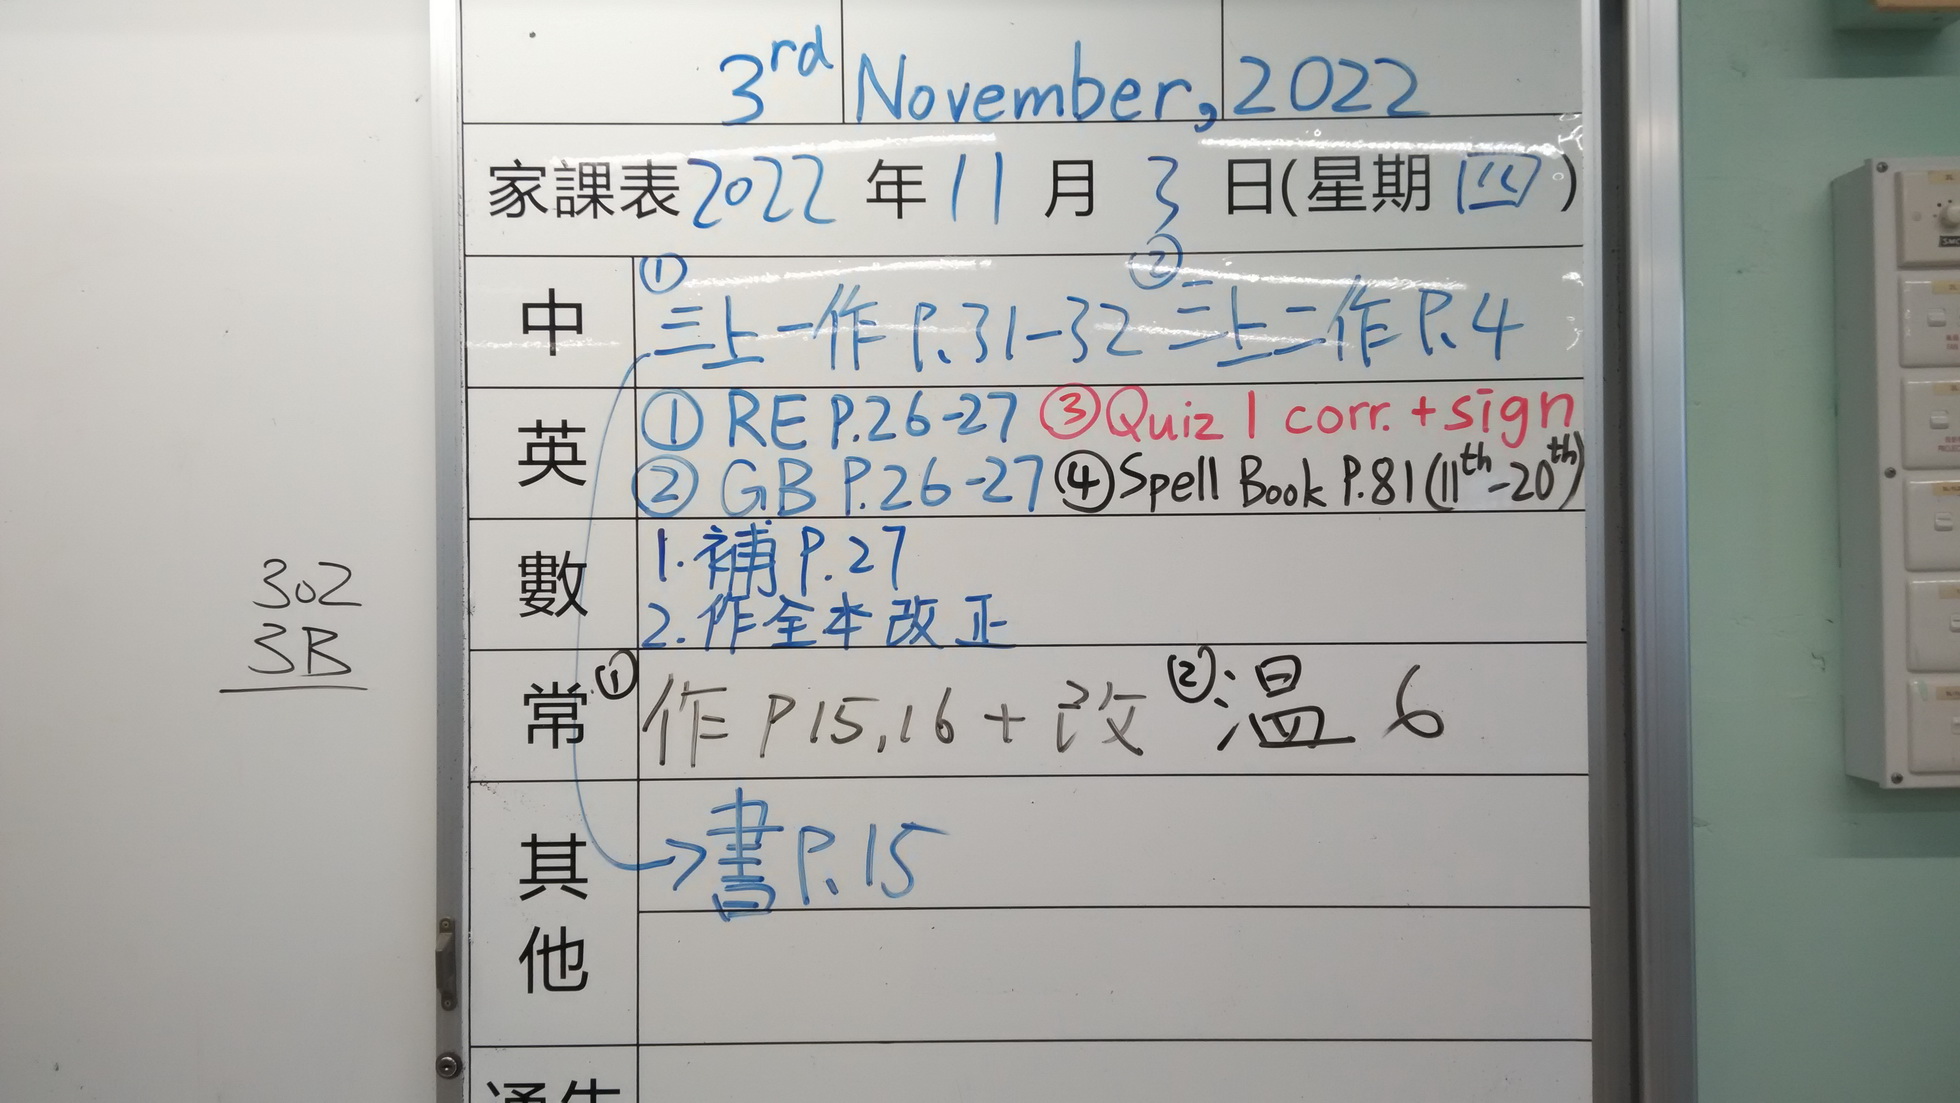 3rd November, 2022
家課表2022年11月3日(星期四)
中
① 三上一作 P.31-32 ② 三上二作 P.4
英
① RE P.26-27 ③ Quiz 1 corr. + sign
② GB P.26-27 ④ Spell Book P.81 (11th-20th)
數
1. 補 P.27
2. 作全本改正
常
① 作 P15,16 + 改 ② 溫 6
其他
→書 P.15
302
3B
通告